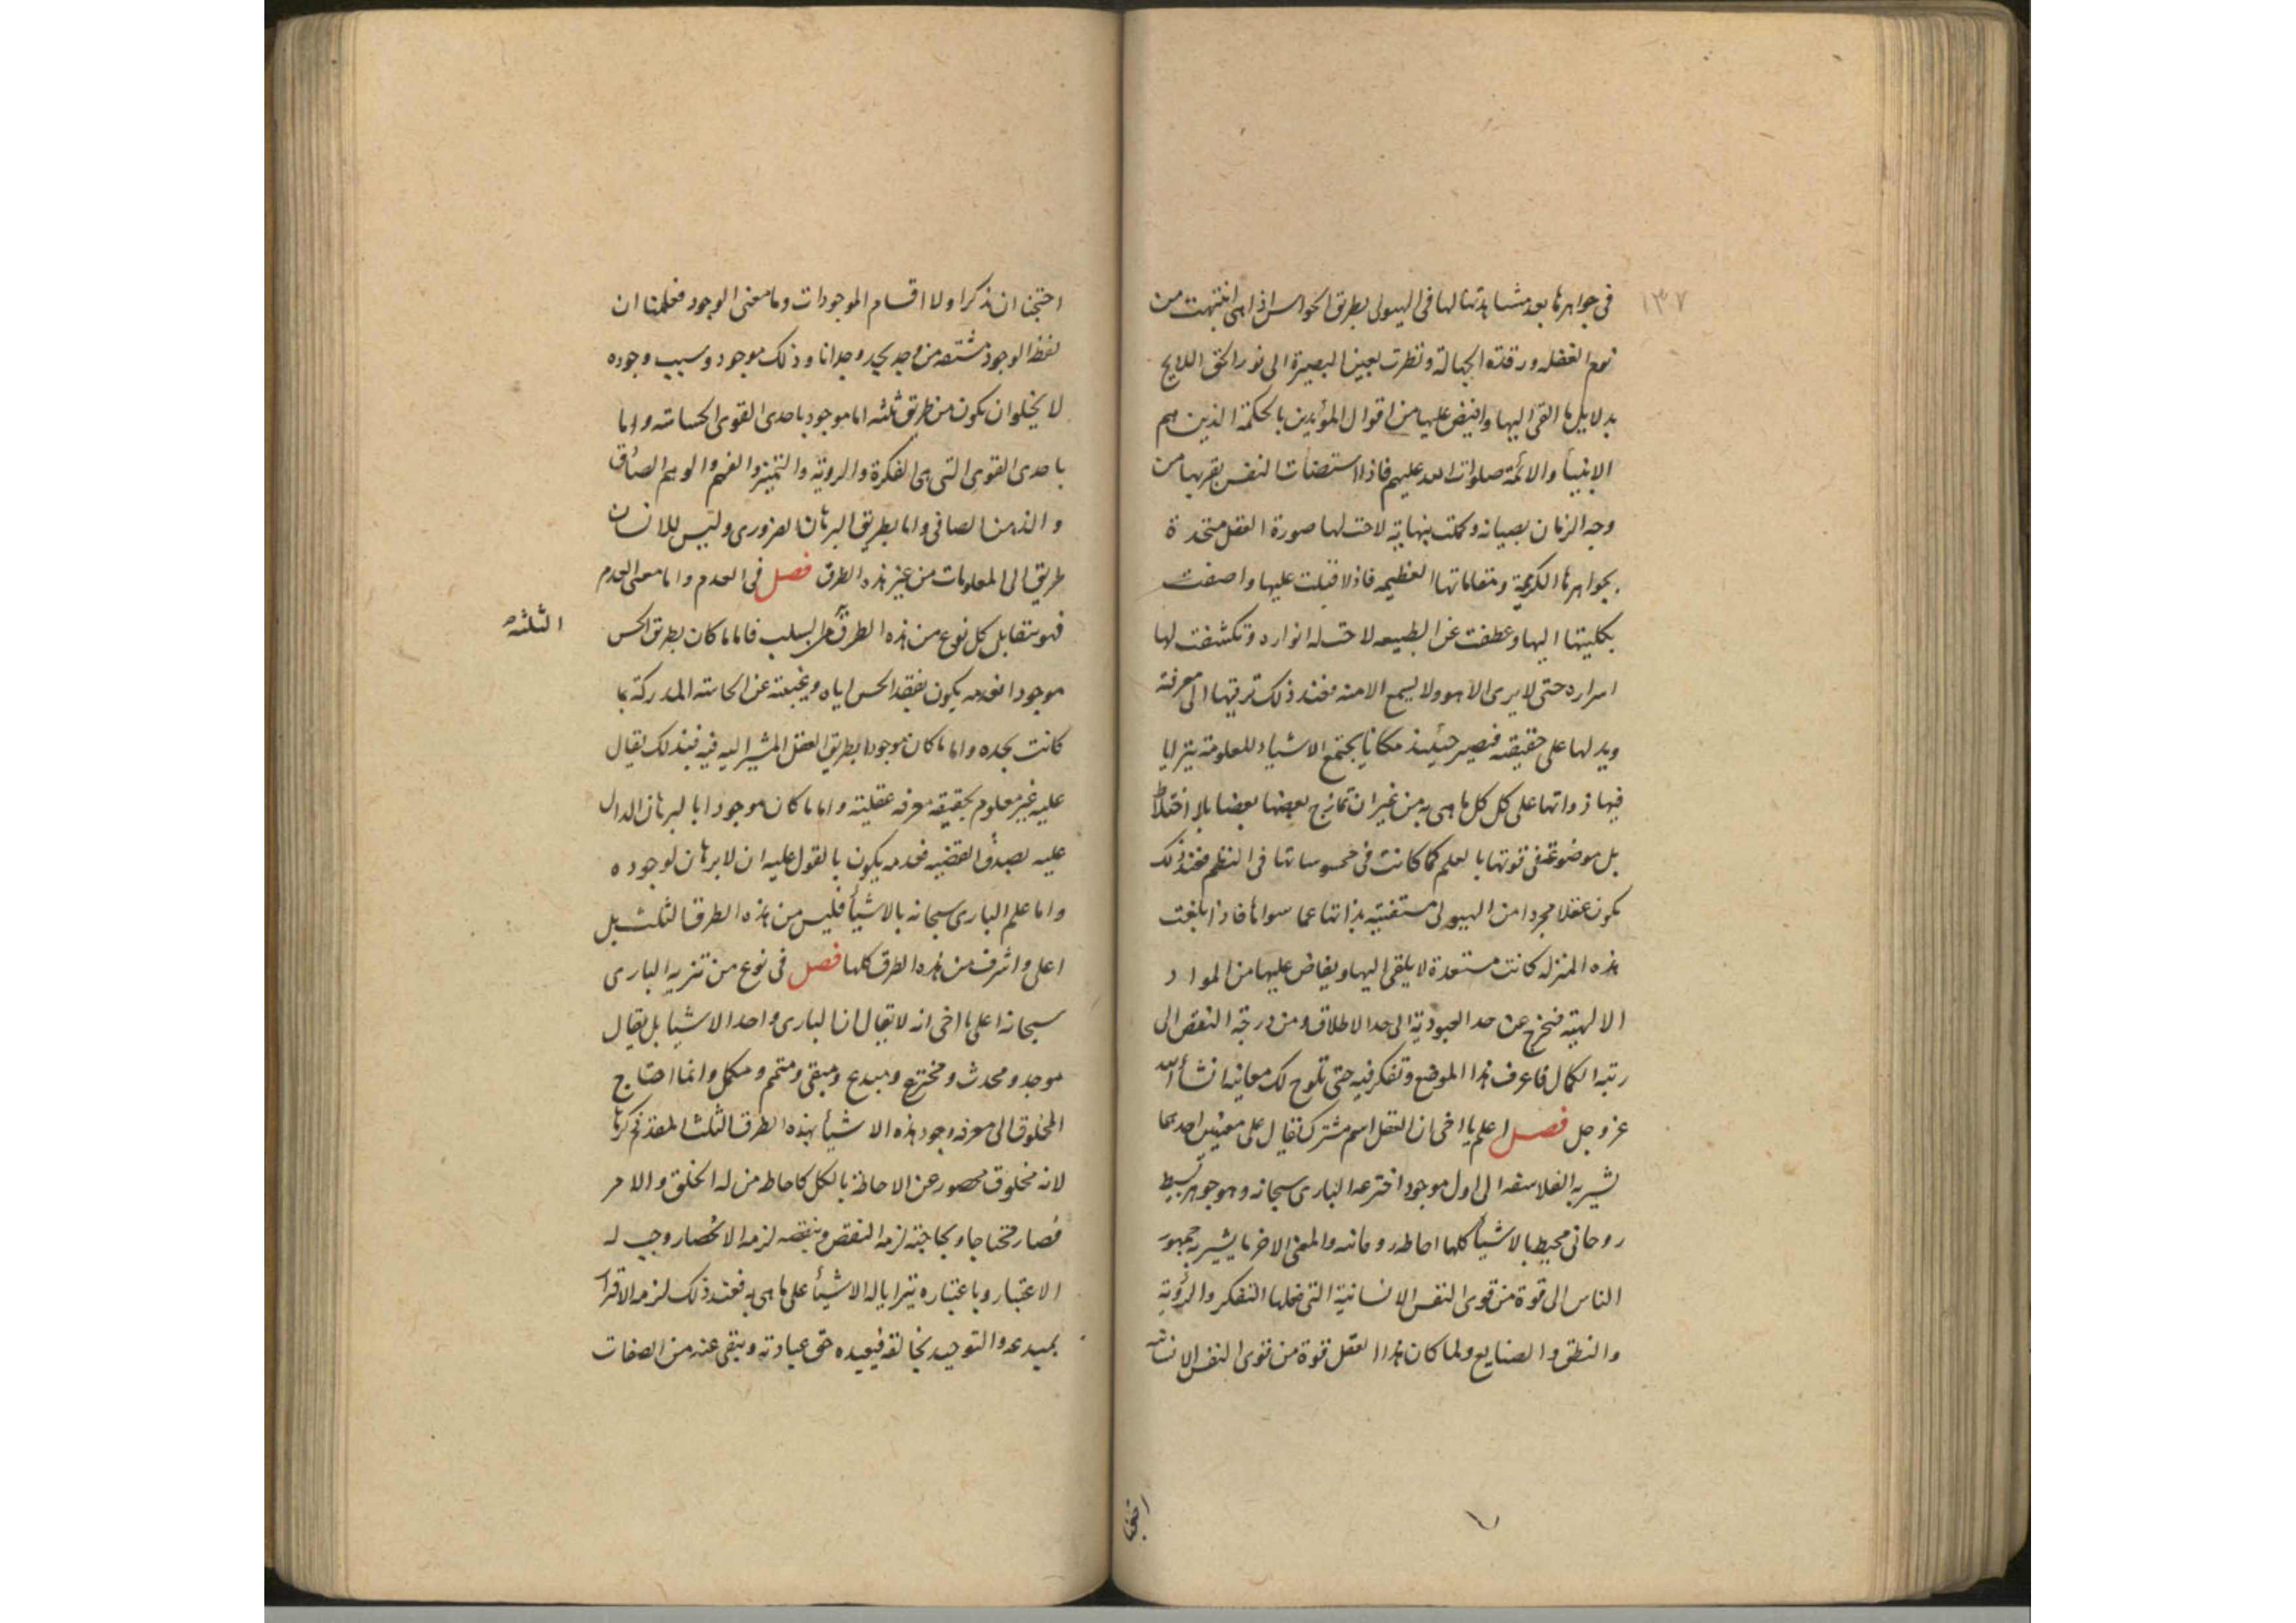 ١٣٧
في جواهرها بعد مشاهدتها لها في الهيولى بطريق الحواس اذا هي انتبهت من
نوم الغفله ورقدة الجهالة ونظرت بعين البصيرة الى نور الحق اللايح
بدلايل ما القى اليها وافيض عليها من اقوال المؤيدين بالحكمة الذين هم
الانبيأ والائمة صلوات الله عليهم فاذا استضأت النفس بقربها من
وجه الزمان بصيانه وكملت بنهايته لاحت لها صورة العقل متحدة
بجواهرها الكريمة ومقاماتها العظيمه فاذا اقبلت عليها واصغت
بكليتها اليها وعطفت عن الطبيعه لاحت له انواره وتكشفت لها
اسراره حتى لا يرى الا هو ولا يسمع الا منه فعند ذلك ترقيها الى معرفة
ويدلها على حقيقته فتصير حينئذ مكانا يجتمع الاشياء المعلومة يترايا
فيها ذواتها على كل كل ما هي به من غير ان تمازج بعضها بعضا بلا اختلاط
بل موضوعة في قوتها بالعلم كما كانت في محسوساتها في النظم فعند ذلك
يكون عقلا مجردا من الهيولى مستغنية بذاتها عما سواها فاذا بلغت
هذه المنزله كانت مستعدة لا يلقى اليها ويفاض عليها من المواد
الالهية فتخرج عن حد العبودية الى حد الاطلاق ومن درجة النقص الى
رتبة الكمال فاعرف هذا الموضع وتفكر فيه حتى تلوح لك معانيه انشأ الله
عز وجل فصل اعلم يا اخي ان العقل اسم مشترك يقال على معنيين احدهما
تشير به الفلاسفه الى اول موجود اخترعه البارى سبحانه وهو جوهر بسيط
روحاني محيط بالاشيأ كلها احاطه روحانيه والمعنى الاخر ما يشير به جمهور
الناس الى قوة من قوى النفس الانسانية التي فعلها التفكر والرؤية
والنطق والصنايع ولما كان هذا العقل قوة من قوى النفس الانسانيه
احتجنا
احتجنا ان نذكر اولا اقسام الموجودات وما معنى الوجود فعلمنا ان
لفظ الوجود مشتقه من وجد يجد وجدانا وذلك موجود وسبب وجوده
لا يخلوا ان يكون من طريق ثلثه اما موجود باحدى القوى الحساسه واما
باحدى القوى التي هي الفكرة والروية والتميز والفهم والوهم الصادق
والذهن الصافي واما بطريق البرهان الضرورى وليس للانسان
طريق الى المعلومات من غير هذه الطرق فصل في العدم واما معنى العدم
فهو يتقابل كل نوع من هذه الطرق بالسلب فاما ما كان بطريق الحس
الثلثه
موجودا فعدمه يكون بفقد الحس اياه وغيبته عن الحاسه المدركة بما
كانت يجده واما ما كان موجودا بطريق العقل المشير اليه فيه فبذلك يقال
عليه غير معلوم بحقيقه معرفه عقلية واما ما كان موجودا بالبرهان الدال
عليه بصدق القضيه فعدمه يكون بالقول عليه ان لا برهان لوجوده
واما علم البارى سبحانه بالاشيأ فليس من هذه الطرق الثلث بل
اعلى واشرف من هذه الطرق كلها فصل في نوع من تنزيه البارى
سبحانه اعلم يا اخي انه لا يقال ان البارى واحد الاشيا بل يقال
موجد ومحدث ومخترع ومبدع ومبقى ومتمم ومكمل وانما احتاج
المخلوق الى معرفه وجود هذه الاشيأ بهذه الطرق الثلث المقدم ذكرها
لانه مخلوق محصور عن الاحاطة بالكل كاحاطه من له الخلق والامر
فصار محتاجا وبحاجته لزمه النقص وبنقصه لزمه الانحصار وجب له
الاعتبار وباعتباره يترايا له الاشيأ على ما هي به فعند ذلك لزمه الاقرار
بمبدعه والتوحيد بخالقه فيعبده حق عبادته وينفي عنه من الصفات